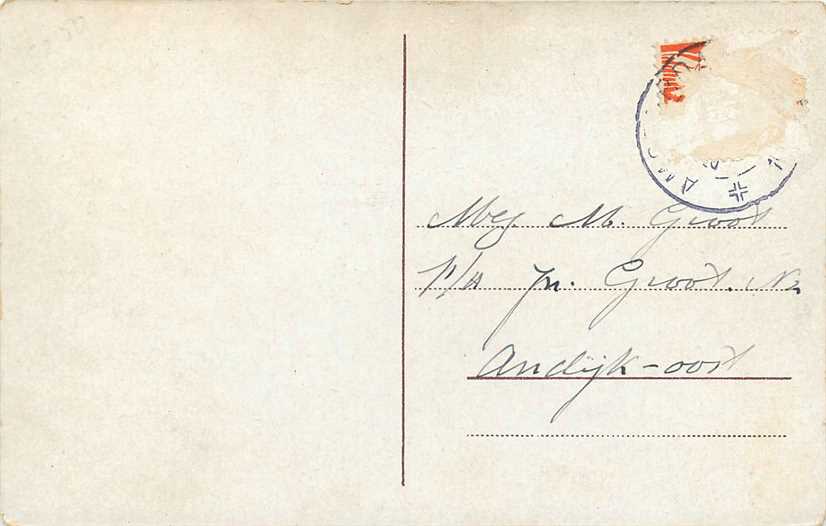 AM
Mej. M. Groot
P/A Jn. Groot. Nz
Andijk-oost